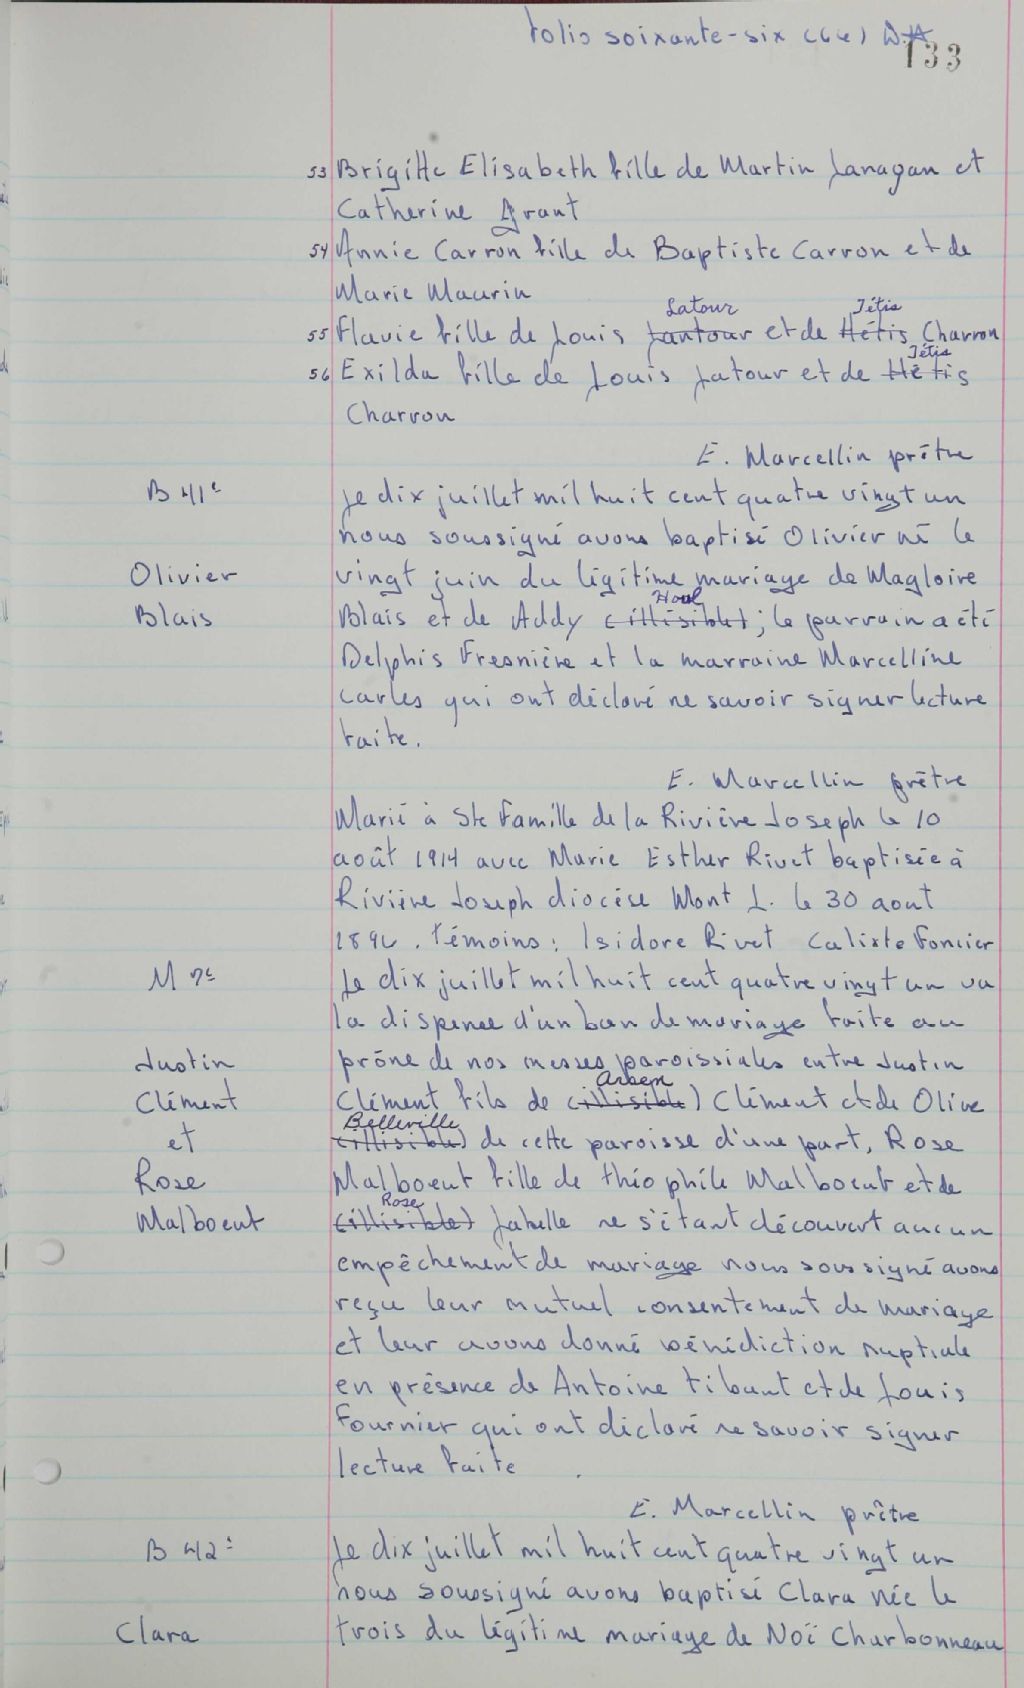 folio soixante-six (66) D.A.
133
53 Brigitte Elisabeth fille de Martin Lanagan et
Catherine Grant
54 Annie Carron fille de Baptiste Carron et de
Marie Maurin
Latour Tétis
55 Flavie fille de Louis Lantour et de Hétis Charron
Tétis
56 Exilda fille de Louis Latour et de Hétis
Charron
E. Marcellin prêtre
B 41e Le dix juillet mil huit cent quatre vingt un
nous soussigné avons baptisé Olivier né le
Olivier vingt juin du légitime mariage de Magloire
Houl
Blais Blais et de Addy (illisible) ; le parrain a été
Delphis Fresnière et la marraine Marcelline
Carles qui ont déclaré ne savoir signer lecture
faite.
E. Marcellin prêtre
Marié à Ste Famille de la Rivière Joseph le 10
août 1914 avec Marie Esther Rivet baptisée à
Rivière Joseph diocèse Mont L. le 30 aout
1896. Témoins : Isidore Rivet Calixte Forcier
M 7e Le dix juillet mil huit cent quatre vingt un vu
la dispense d'un ban de mariage faite au
Justin prône de nos messes paroissiales entre Justin
Arsen
Clément Clément fils de (illisible) Clément et de Olive
Belleville
et (illisible) de cette paroisse d'une part, Rose
Rose Malboeuf fille de théophile Malboeuf et de
Rose
Malboeuf (illisible) Labelle ne s'étant découvert aucun
empêchement de mariage nous soussigné avons
reçu leur mutuel consentement de mariage
et leur avons donné bénédiction nuptiale
en présence de Antoine Tibaut et de Louis
Fournier qui ont déclaré ne savoir signer
lecture faite.
E. Marcellin prêtre
B 42e Le dix juillet mil huit cent quatre vingt un
nous soussigné avons baptisé Clara née le
Clara trois du légitime mariage de Noë Charbonneau